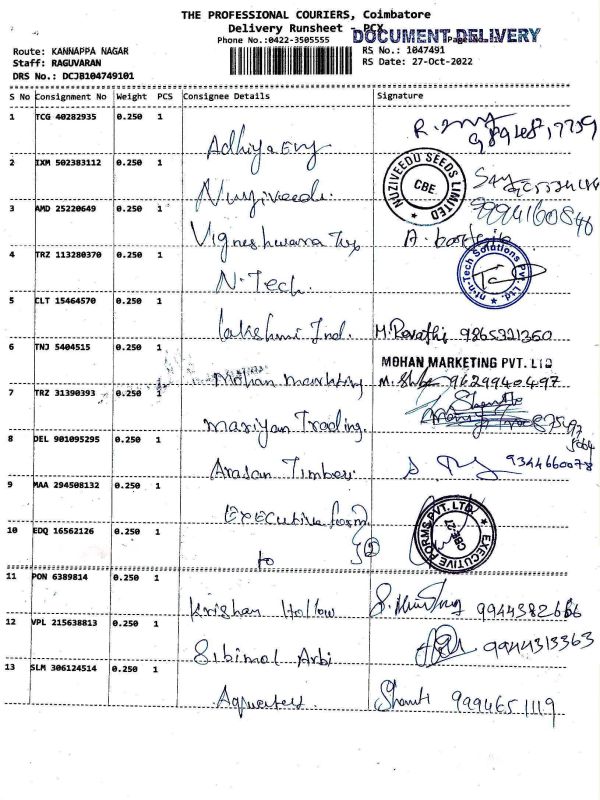 THE PROFESSIONAL COURIERS, Coimbatore
Delivery Runsheet - PCX
DOCUMENT DELIVERY
Phone No.:0422-3505555
Route: KANNAPPA NAGAR
RS No.: 1047491
Staff: RAGUVARAN
RS Date: 27-Oct-2022
DRS No.: DCJB104749101
S No Consignment No Weight PCS Consignee Details Signature
1 TCG 40282935 0.250 1
Adhiya Eng R.
2 IXM 502383112 0.250 1
Nuziveedu NUZIVEEDU SEEDS LIMITED CBE
3 AMD 25220649 0.250 1
Vigneshwara Tex A.
4 TRZ 113280370 0.250 1
N-Tech. nt-n-Tech Solutions Pvt. Ltd.
5 CLT 15464570 0.250 1
Lakshmi Ind. M. Revathi 9865321350
6 TNJ 5404515 0.250 1
MOHAN MARKETING PVT. LTD
Mohan Marketing M. 9629940497
7 TRZ 31390393 0.250 1
Mariyan Trading.
8 DEL 901095295 0.250 1
Arasan Timber S. 9344660078
9 MAA 294508132 0.250 1
Executive form EXECUTIVE FORMS PVT. LTD. CBE-27
10 EDQ 16562126 0.250 1
to 2
11 PON 6389814 0.250 1
Krishan Hollow 9944382666
12 VPL 215638813 0.250 1
Sibimol Arbi 9944313363
13 SLM 306124514 0.250 1
Aquaters Shanti 9994651119